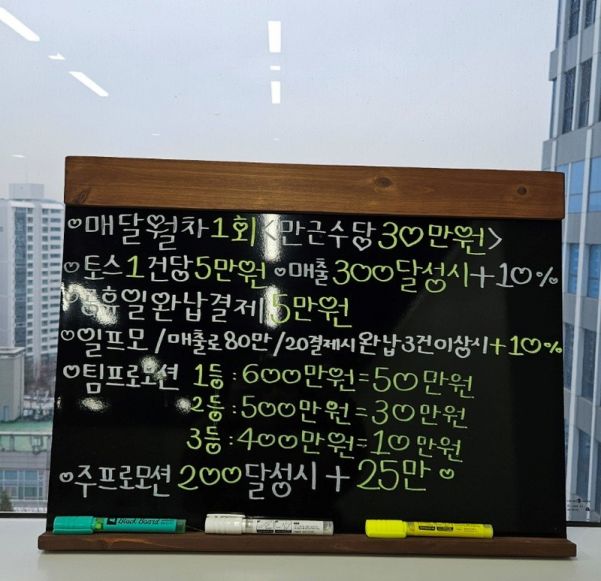 매달월차1회<만근수당30만원>
토스1건당5만원 매출300달성시+10%
공휴일완납결제5만원
일프모/매출로80만/20결제시완납3건이상시+10%
팀프로모션 1등:600만원=50만원
2등:500만원=30만원
3등:400만원=10만원
주프로모션200달성시+25만
Black Board